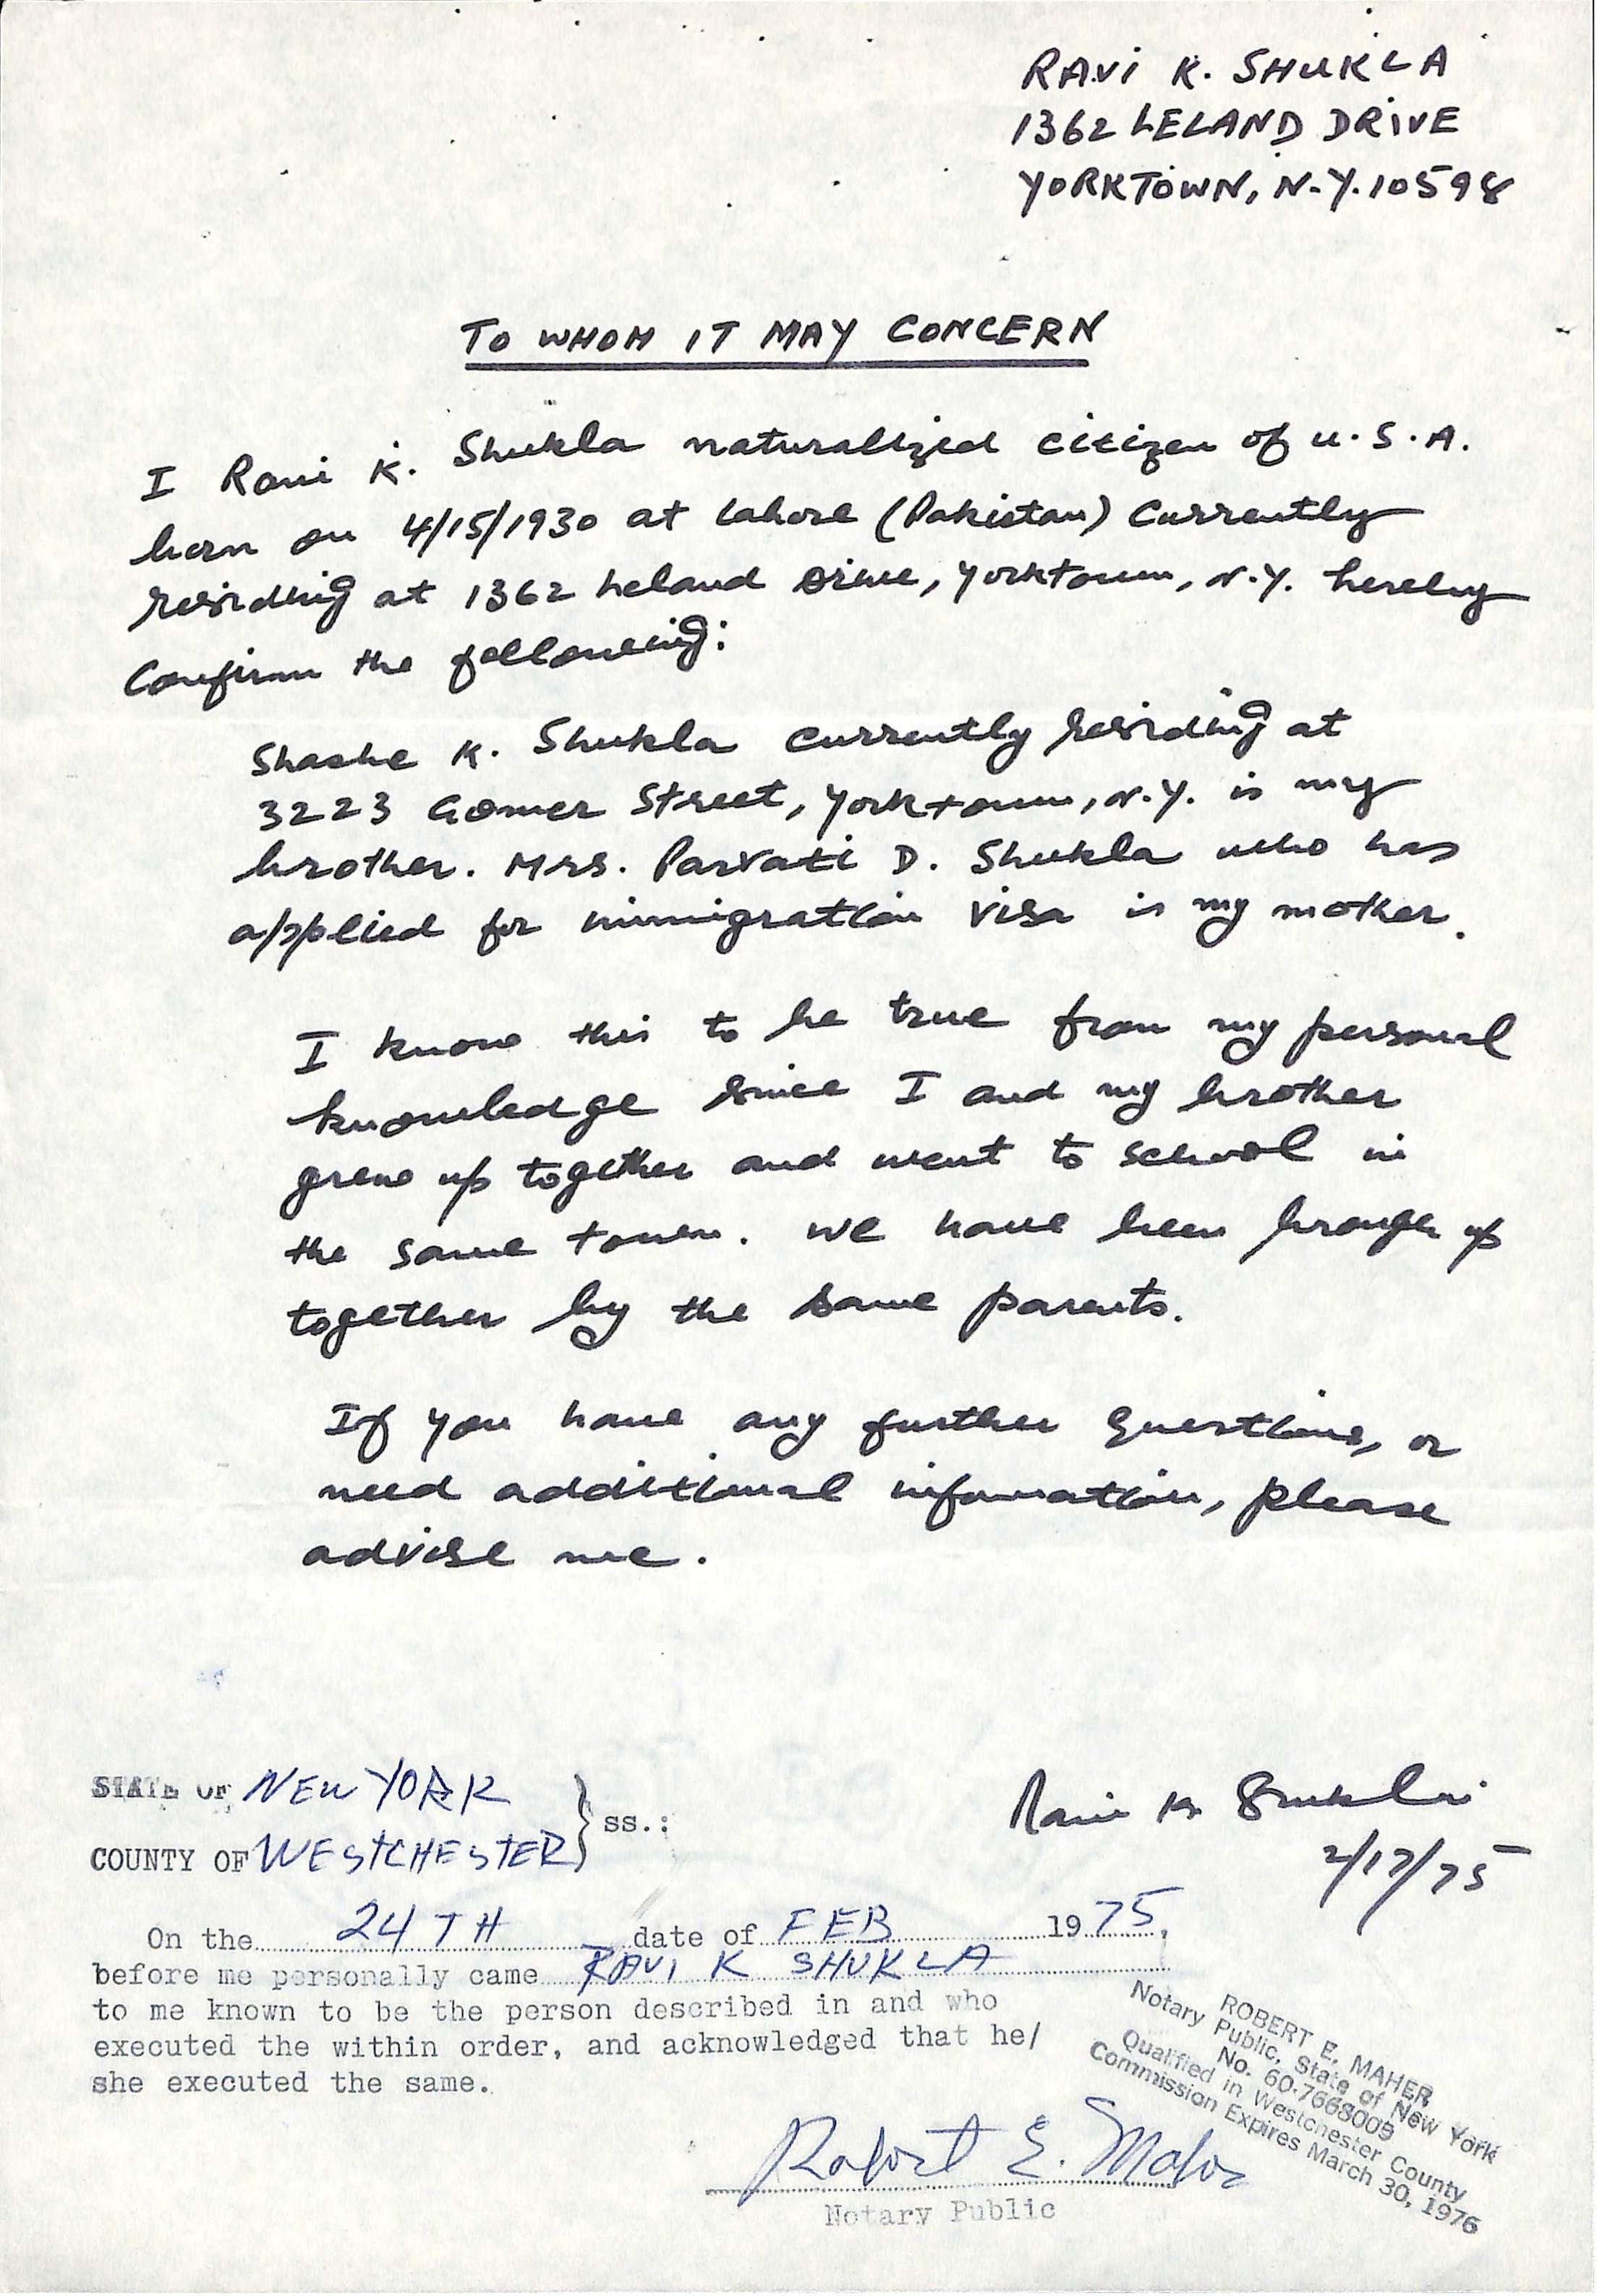 RAVI K. SHUKLA
1362 LELAND DRIVE
YORKTOWN, N.Y. 10598
TO WHOM IT MAY CONCERN
I Ravi K. Shukla naturalized citizen of U.S.A.
born on 4/15/1930 at Lahore (Pakistan) currently
residing at 1362 Leland Drive, Yorktown, N.Y. hereby
confirm the following:
Shashe K. Shukla currently residing at
3223 Gomer Street, Yorktown, N.Y. is my
brother. Mrs. Parvati D. Shukla who has
applied for immigration visa is my mother.
I know this to be true from my personal
knowledge since I and my brother
grew up together and went to school in
the same town. We have been brough up
together by the same parents.
If you have any further questions, or
need additional information, please
advise me.
Ravi K. Shukla
2/17/75
STATE OF NEW YORK
COUNTY OF WESTCHESTER } ss.:
On the 24TH date of FEB 1975,
before me personally came RAVI K SHUKLA
to me known to be the person described in and who
executed the within order, and acknowledged that he/
she executed the same.
ROBERT E. MAHER
Notary Public, State of New York
No. 60-7668009
Qualified in Westchester County
Commission Expires March 30, 1976
Robert E. Maher
Notary Public